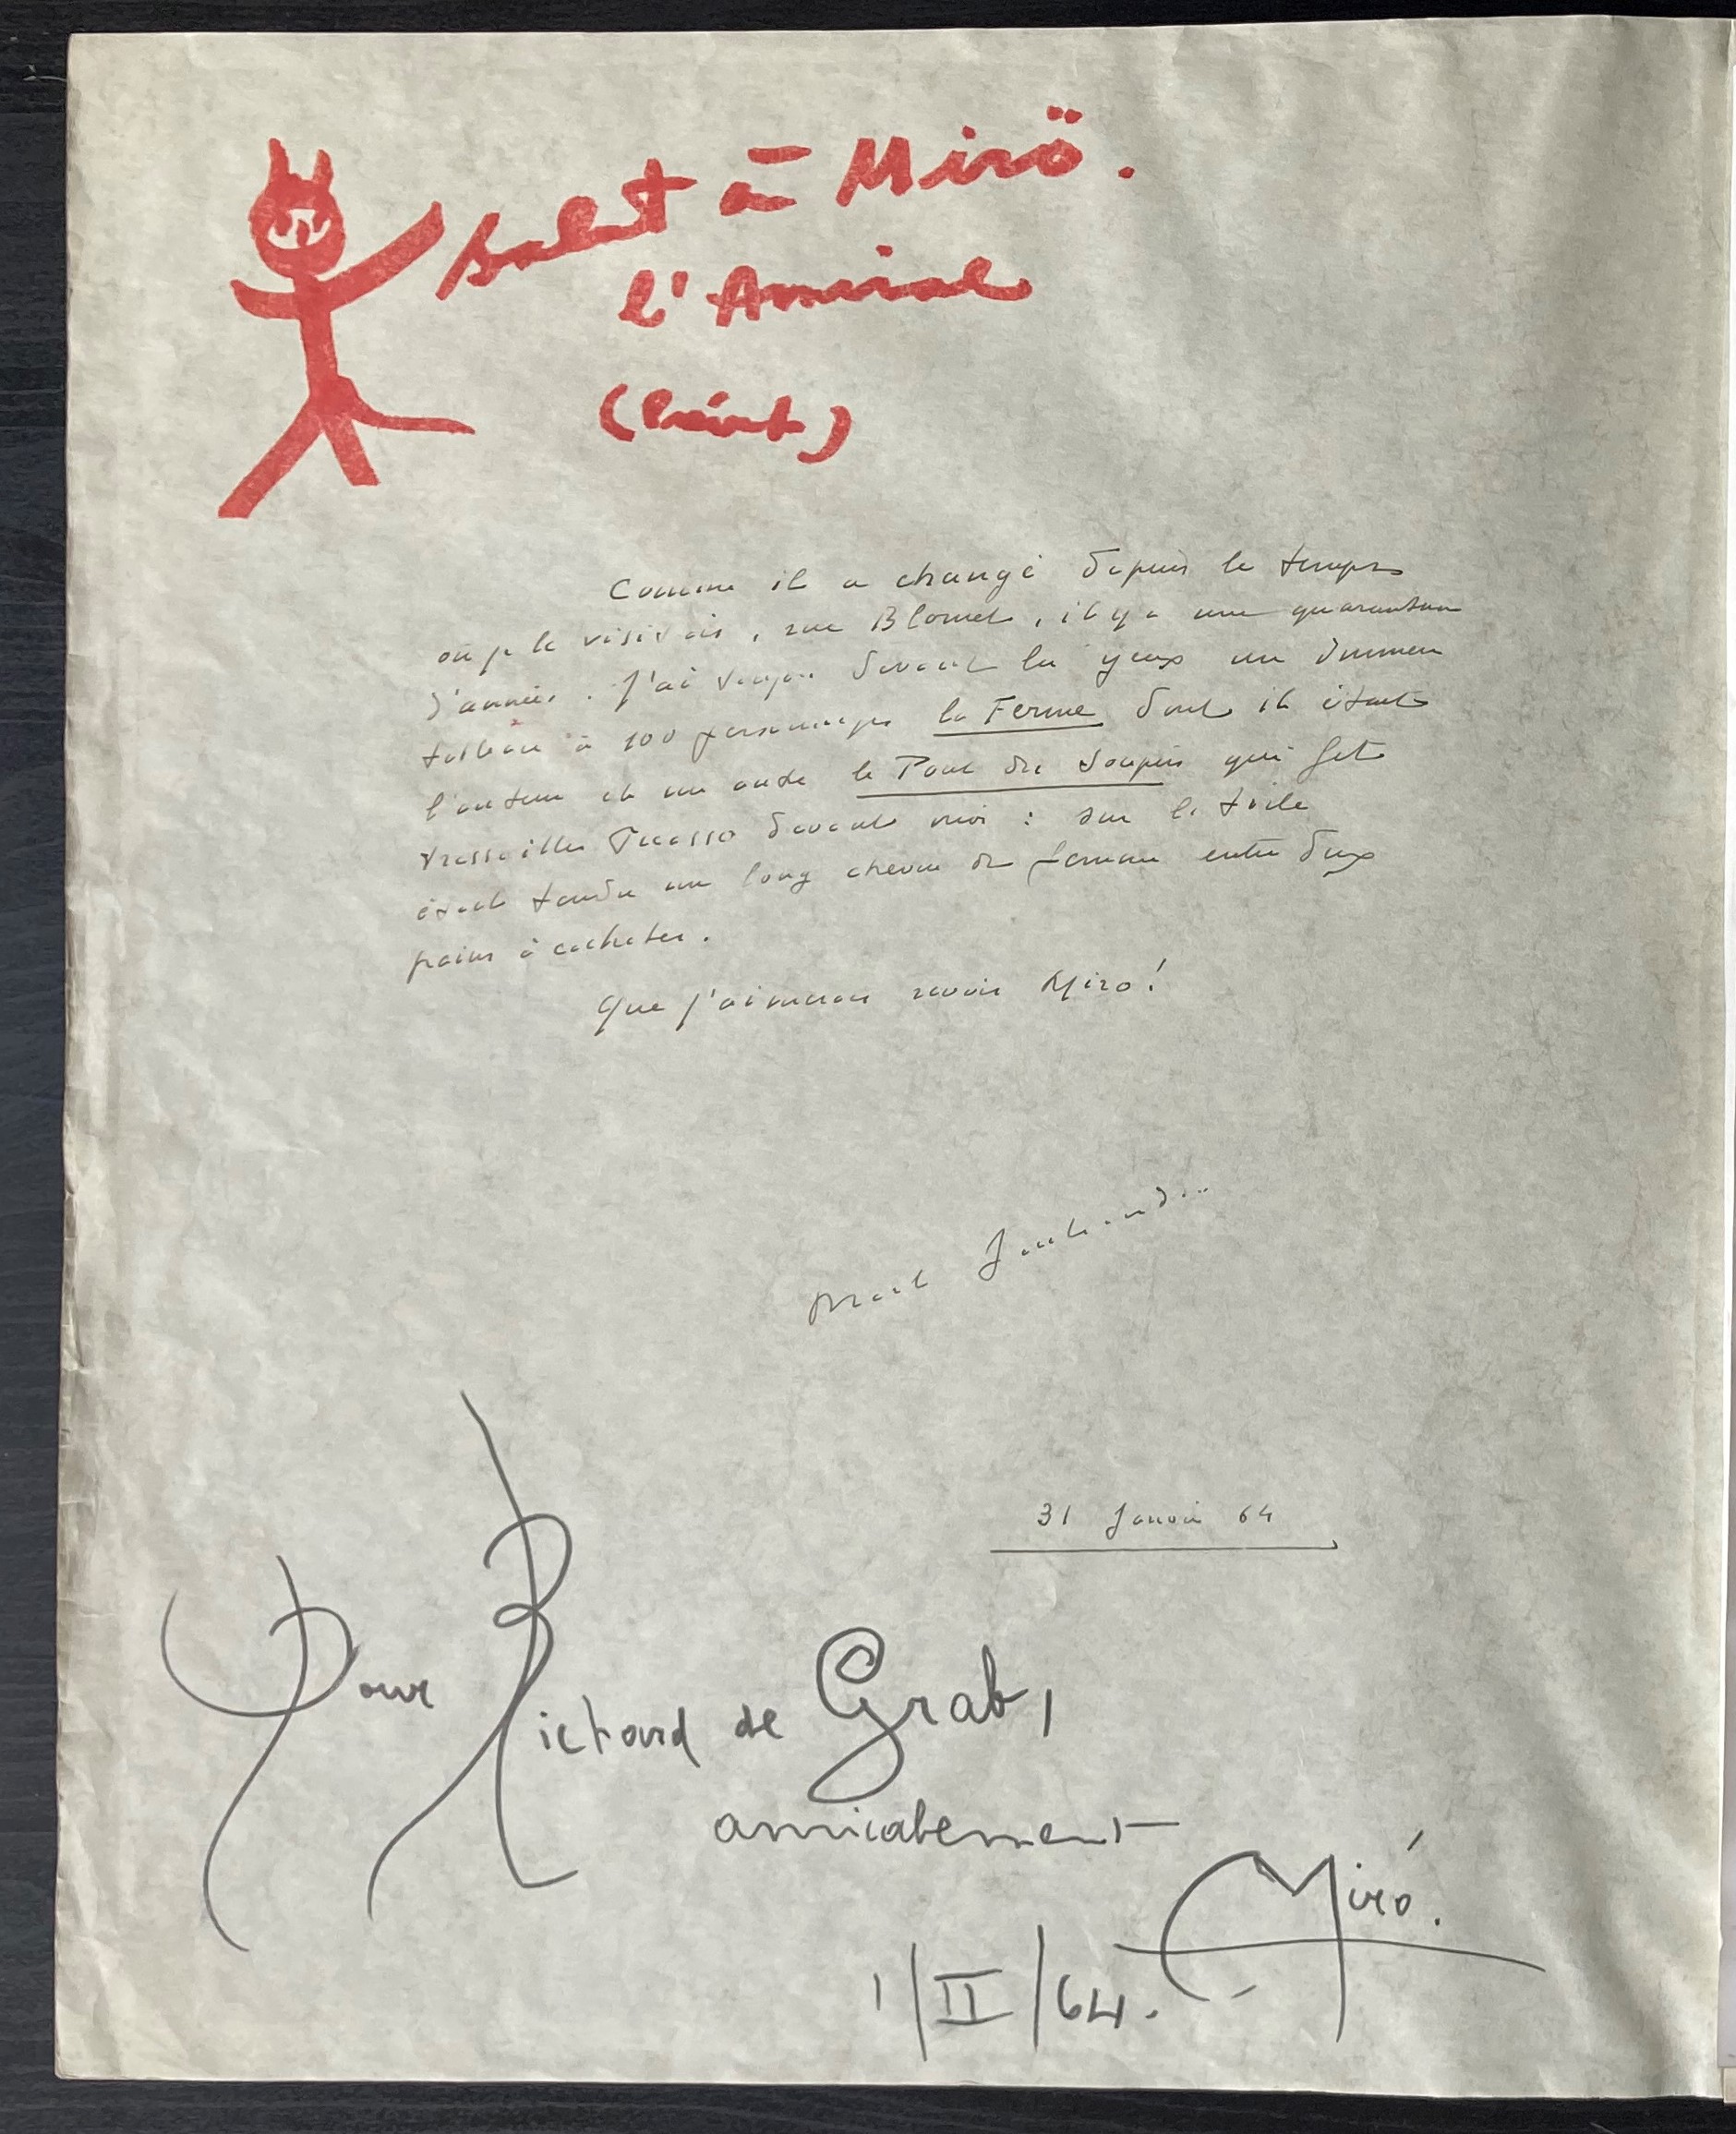 Salut à Miró.
l'Amiral
Comme il a changé depuis le temps
où je le visitais, rue Blomet, il y a une quarantaine
d'années. J'ai toujours devant les yeux un immense
tableau à 100 personnages la Ferme dont il était
l'auteur et un autre le Pont des Soupirs qui fit
tressaillir Picasso devant moi : sur la toile
était tendu un long cheveu de femme entre deux
pains à cacheter.
Que j'aimerais revoir Miro!
Marcel Jouhandeau
31 Janvier 64
Pour Richard de Grab,
amicalement
Miró.
1/II/64.